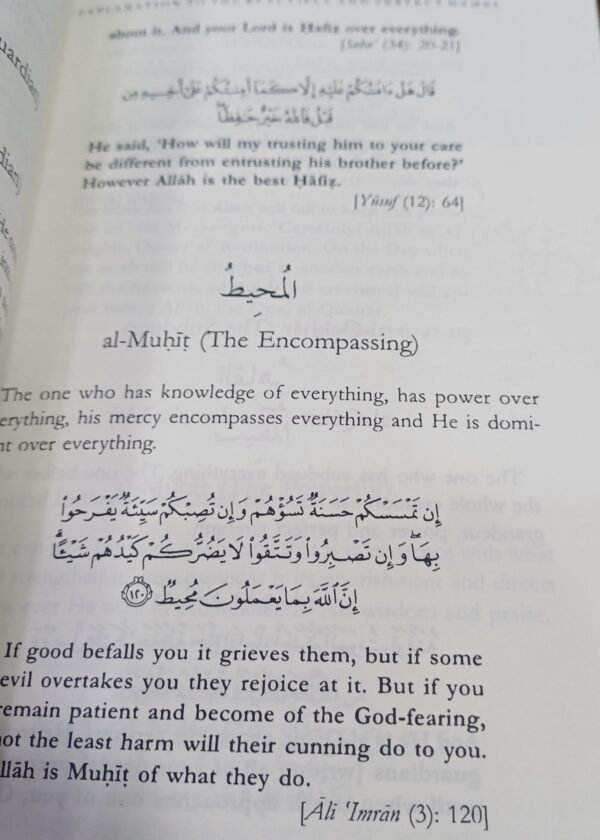 EXPLANATION TO THE BEAUTIFUL AND PERFECT NAMES
about it. And your Lord is Ḥafīẓ over everything.
[Saba’ (34): 20-21]
قَالَ هَلْ ءَامَنُكُمْ عَلَيْهِ إِلَّا كَمَا أَمِنتُكُمْ عَلَىٰ أَخِيهِ مِن
قَبْلُ فَاللَّهُ خَيْرٌ حَـٰفِظًا
He said, ‘How will my trusting him to your care
be different from entrusting his brother before?’
However Allāh is the best Ḥāfiẓ.
[Yūsuf (12): 64]
المُحِيطُ
al-Muḥīṭ (The Encompassing)
The one who has knowledge of everything, has power over
erything, his mercy encompasses everything and He is domi-
nt over everything.
إِن تَمْسَسْكُمْ حَسَنَةٌ تَسُؤْهُمْ وَإِن تُصِبْكُمْ سَيِّئَةٌ يَفْرَحُوا۟
بِهَا ۖ وَإِن تَصْبِرُوا۟ وَتَتَّقُوا۟ لَا يَضُرُّكُمْ كَيْدُهُمْ شَيْـًٔا ۗ
إِنَّ اللَّهَ بِمَا يَعْمَلُونَ مُحِيطٌ ١٢٠
If good befalls you it grieves them, but if some
evil overtakes you they rejoice at it. But if you
remain patient and become of the God-fearing,
not the least harm will their cunning do to you.
llāh is Muḥīṭ of what they do.
[Āli ‘Imrān (3): 120]